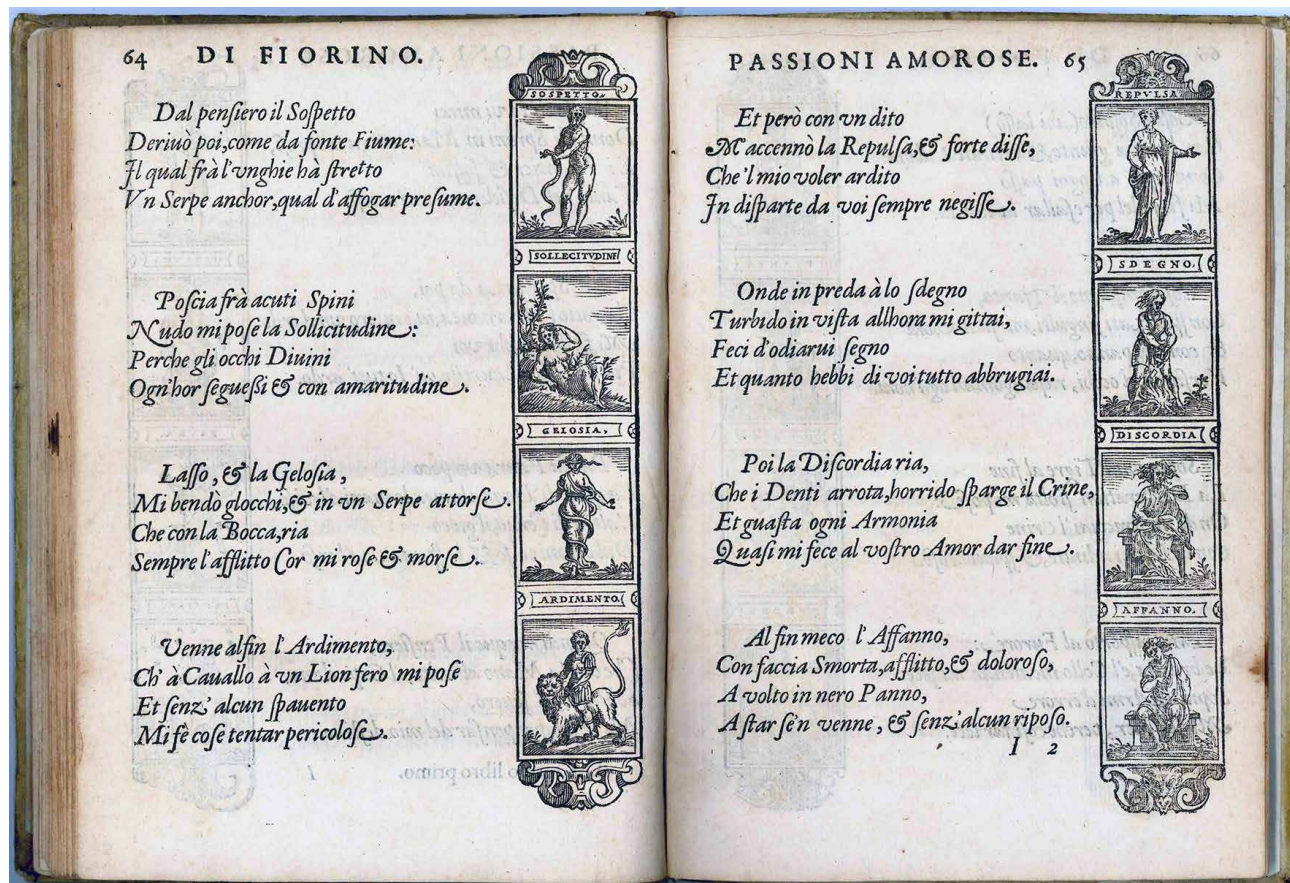 64 DI FIORINO.
Dal pensiero il Sospetto
Deriuò poi, come da fonte Fiume:
Il qual frà l'vnghie hà stretto
Vn Serpe anchor, qual d'affogar presume.
SOSPETTO.
Poscia frà acuti Spini
Nudo mi pose la Sollicitudine:
Perche gli occhi Diuini
Ogn'hor seguessi & con amaritudine.
SOLLECITVDINE
Lasso, & la Gelosia,
Mi bendò glocchi, & in vn Serpe attorse.
Che con la Bocca, ria
Sempre l'afflitto Cor mi rose & morse.
GELOSIA,
Venne alfin l'Ardimento,
Ch'à Cauallo à vn Lion fero mi pose
Et senz'alcun spauento
Mi fè cose tentar pericolose.
ARDIMENTO.
PASSIONI AMOROSE. 65
Et però con vn dito
M'accennò la Repulsa, & forte disse,
Che 'l mio voler ardito
In disparte da voi sempre negisse.
REPVLSA.
Onde in preda à lo sdegno
Turbido in vista allhora mi gittai,
Feci d'odiarui segno
Et quanto hebbi di voi tutto abbrugiai.
SDEGNO.
Poi la Discordia ria,
Che i Denti arrota, horrido sparge il Crine,
Et guasta ogni Armonia
Quasi mi fece al vostro Amor dar fine.
DISCORDIA
Al fin meco l'Affanno,
Con faccia Smorta, afflitto, & doloroso,
A volto in nero Panno,
A star se'n venne, & senz'alcun riposo.
AFFANNO.
I 2